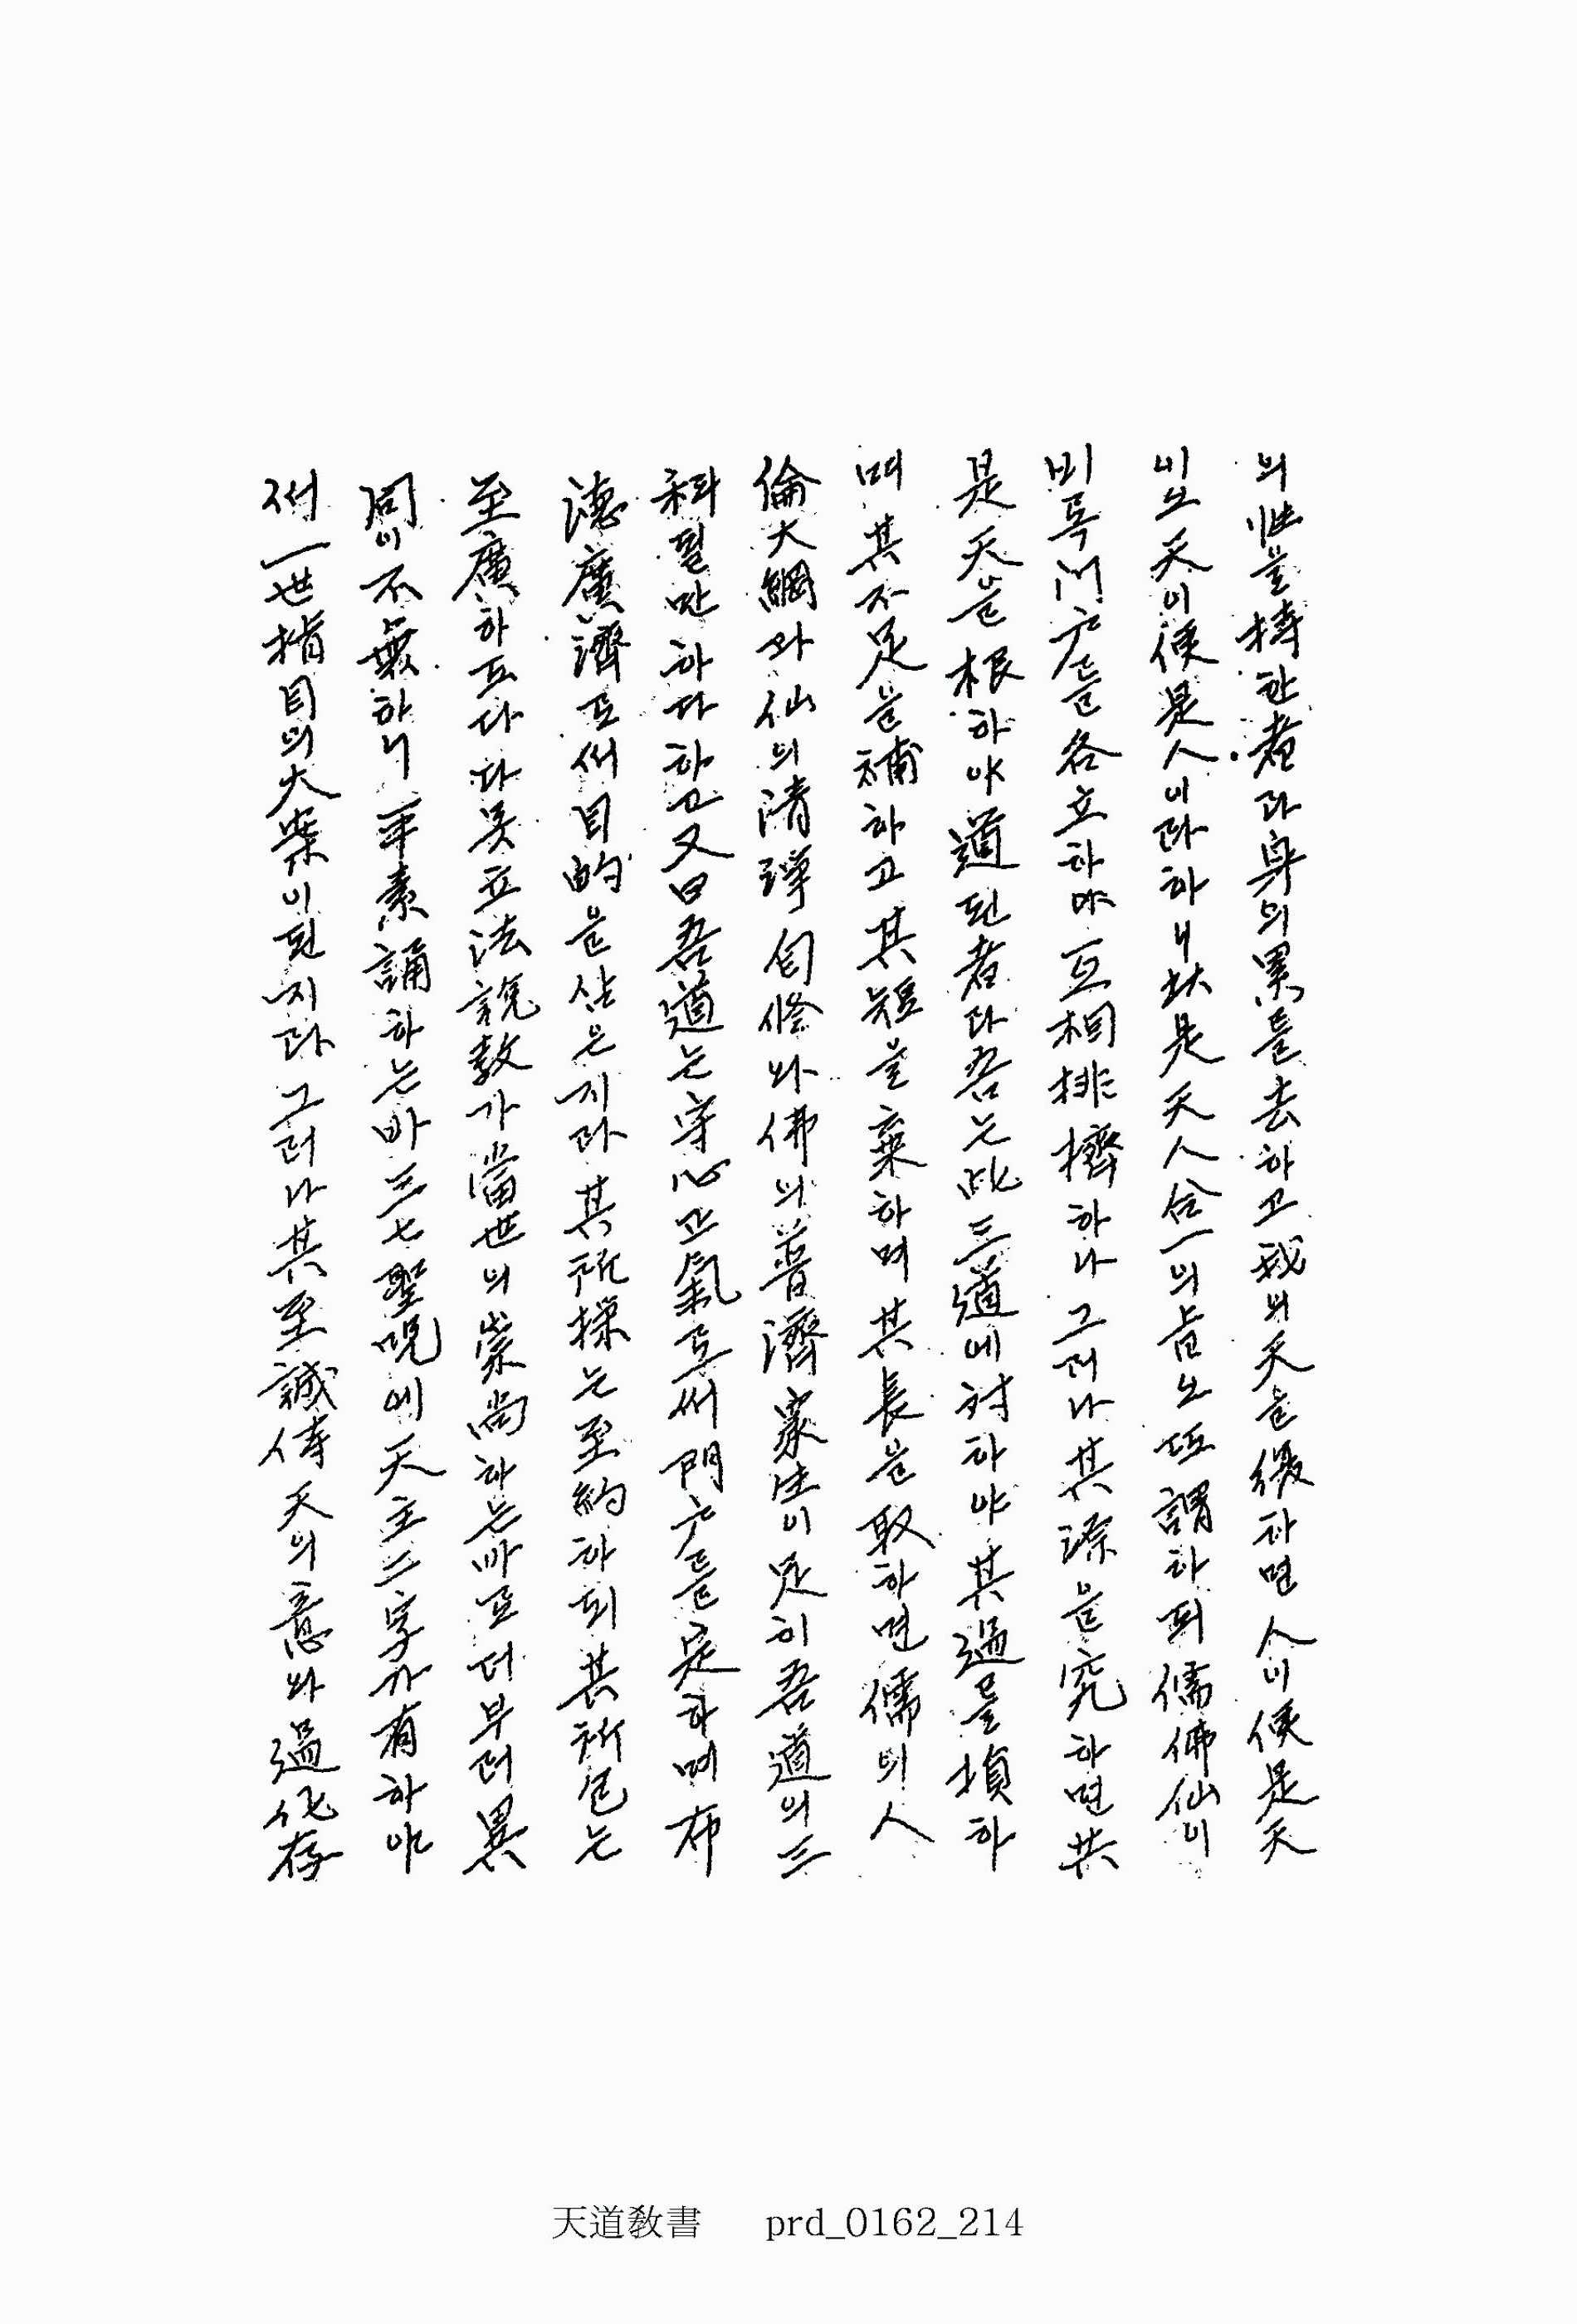 의 性을 持한 者라 身의 累를 去하고 我의 天을 복하면 人이 侯是天
이오 天이 侯是人이라 하니 此是天人合一의 旨노 或謂하되 儒佛仙이
비록 門戶를 各立하야 互相排擠하나 그러나 其源을 究하면 共
是天을 根하야 道된 者라 吾는 此三道에 對하야 其過를 損하
며 其不足을 補하고 其短을 棄하며 其長을 取하면 儒의 人
倫大綱과 仙의 淸淨自修와 佛의 普濟衆生이 足히 吾道의 三
科될만하다 하고 又曰 吾道는 守心正氣로써 門戶를 定하며 布
德廣濟로써 目的을 삼은지라 其所操는 至約하되 其所包는
至廣하도다 다못 立法說敎가 當世의 崇尙하는 바로 더부러 異
同이 不無하니 平素 誦하는 바 三七聖呪에 天主二字가 有하야
써 一世指目의 大案이 된지라 그러나 其至誠侍天의 意와 過化存
天道敎書 prd_0162_214